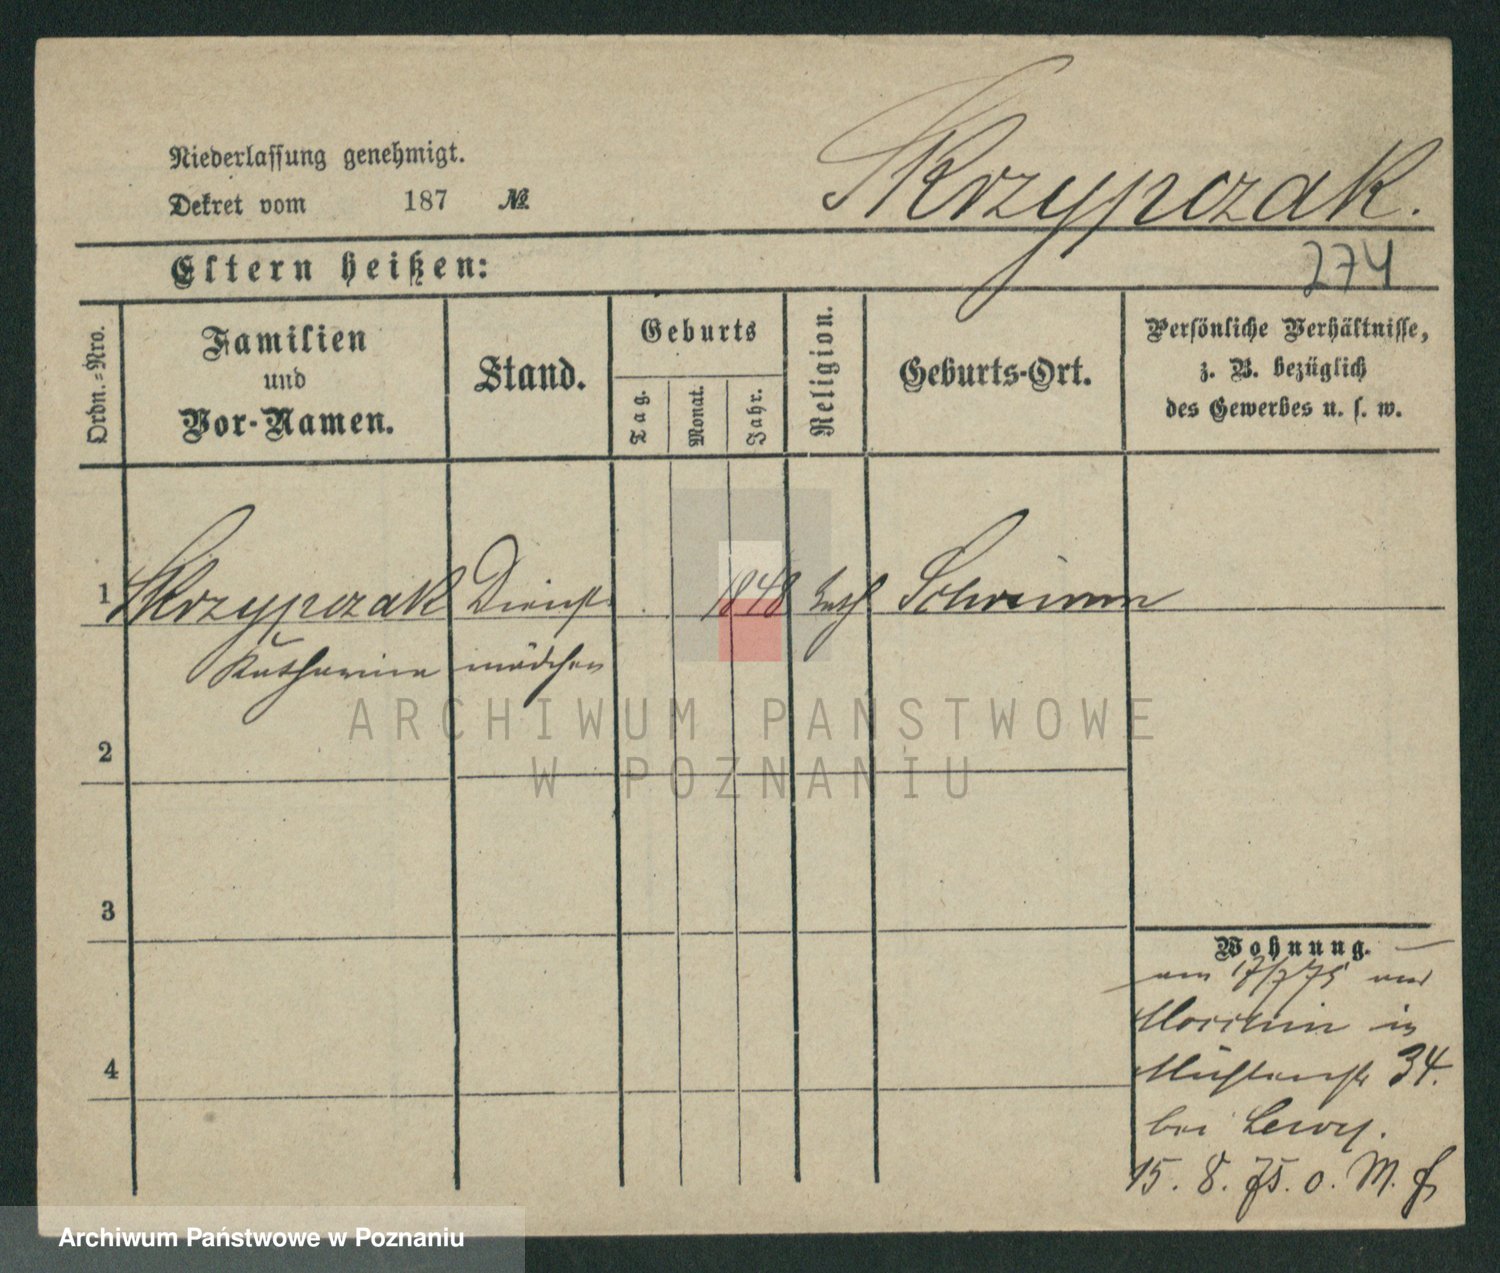 Niederlassung genehmigt.
Dekret vom 187 №
Skrzypczak.
Eltern heißen:
274
Ordn.=Nro.
Familien
und
Vor-Namen.
Stand.
Geburts
Tag.
Monat.
Jahr.
Religion.
Geburts-Ort.
Persönliche Verhältnisse,
z. B. bezüglich
des Gewerbes u. s. w.
1 Skrzypczak Dienst 1848 kath
Katharina mädchen
2
3
4
Wohnung.
am 17/7 75 von
in
Mühlenstr 34.
bei Lewy.
15. 8. 75. o. M.
ARCHIWUM PAŃSTWOWE
W POZNANIU
Archiwum Państwowe w Poznaniu